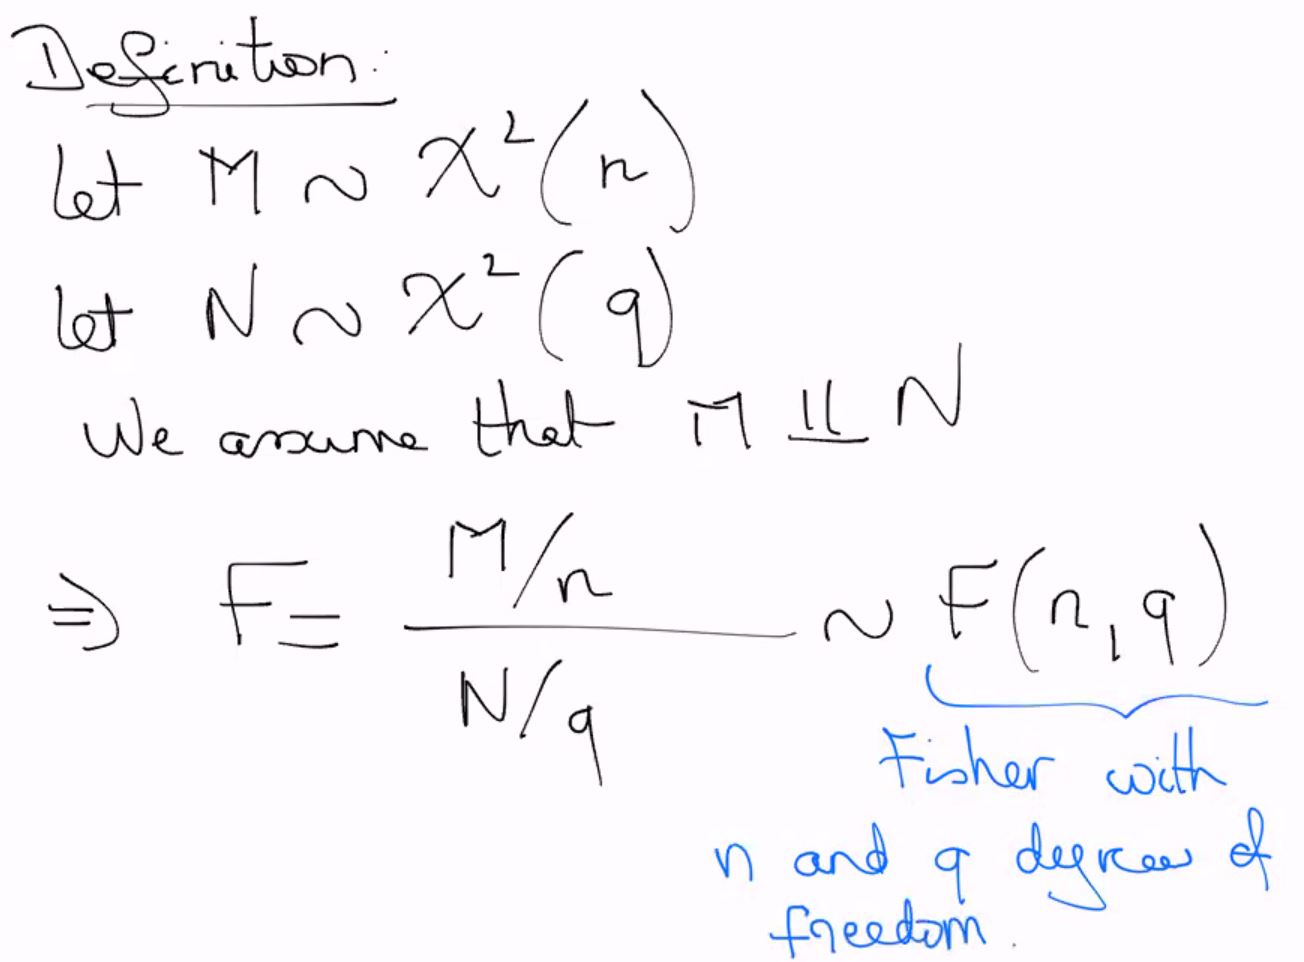 Definition:
let M ~ χ²(n)
let N ~ χ²(q)
We assume that M ⫫ N
⇒ F = (M/n) / (N/q) ~ F(n, q)
Fisher with
n and q degrees of
freedom.